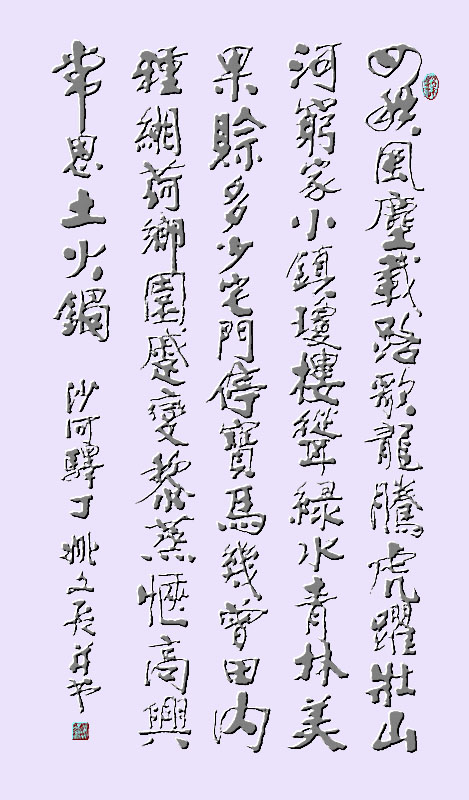 四秩風塵載路歌龍騰虎躍壯山
河窮家小鎮瓊樓聳綠水青林美
果賒多少宅門停寶馬幾曾田內
種緗荷鄉園蹙變黎蒸愜高興
常思土火鍋
沙河驛丁 姚文